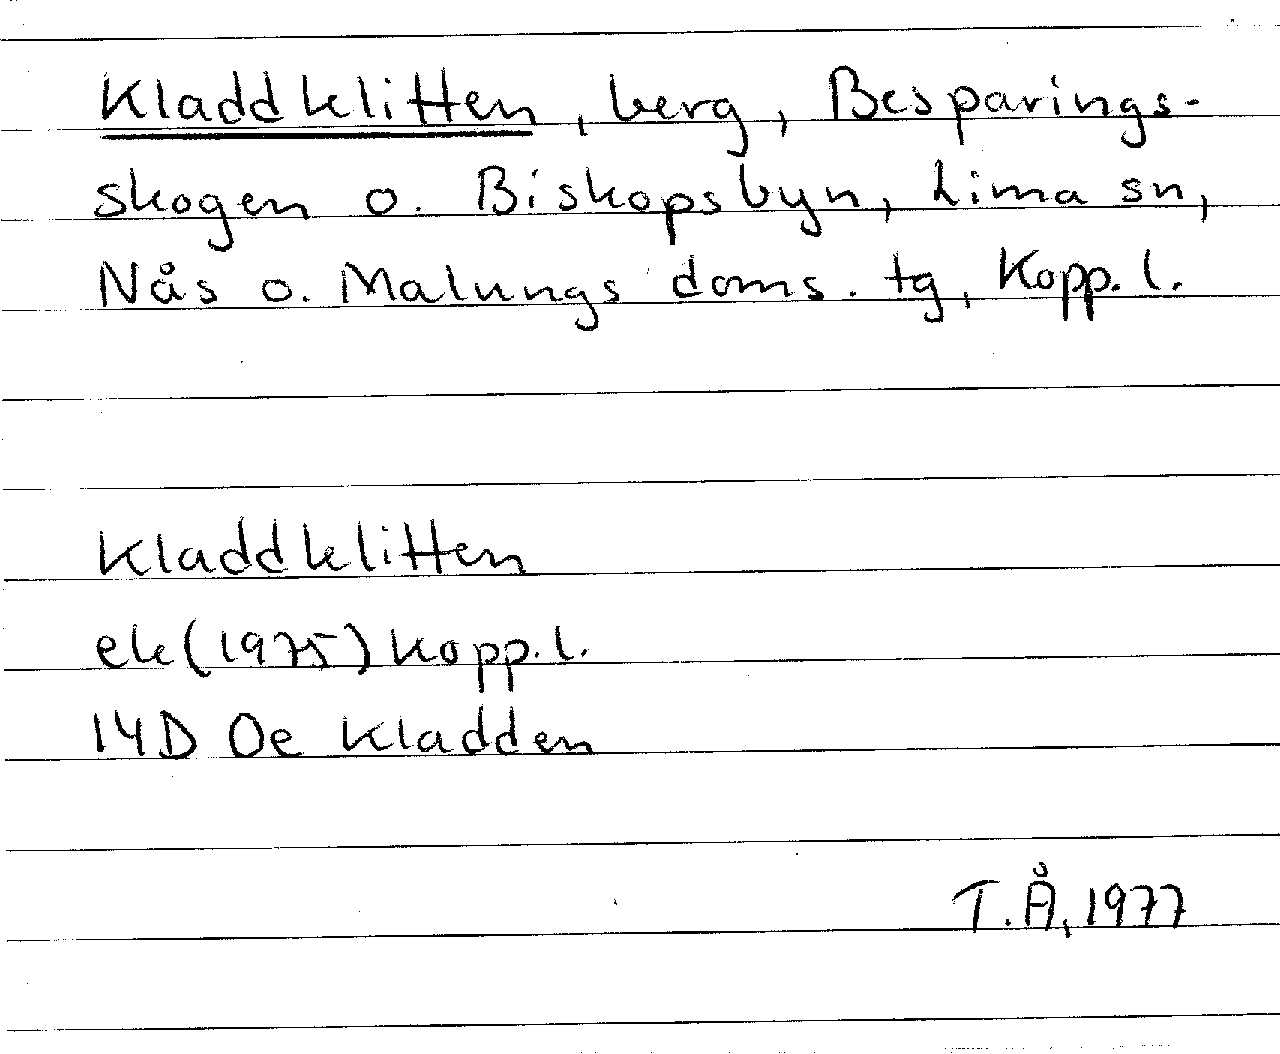 Kladdklitten, berg, Besparings-
skogen o. Biskopsbyn, Lima sn,
Nås o. Malungs doms. tg, Kopp. l.
Kladdklitten
ek (1975) Kopp. l.
14D 0e Kladden
T. Å, 1977